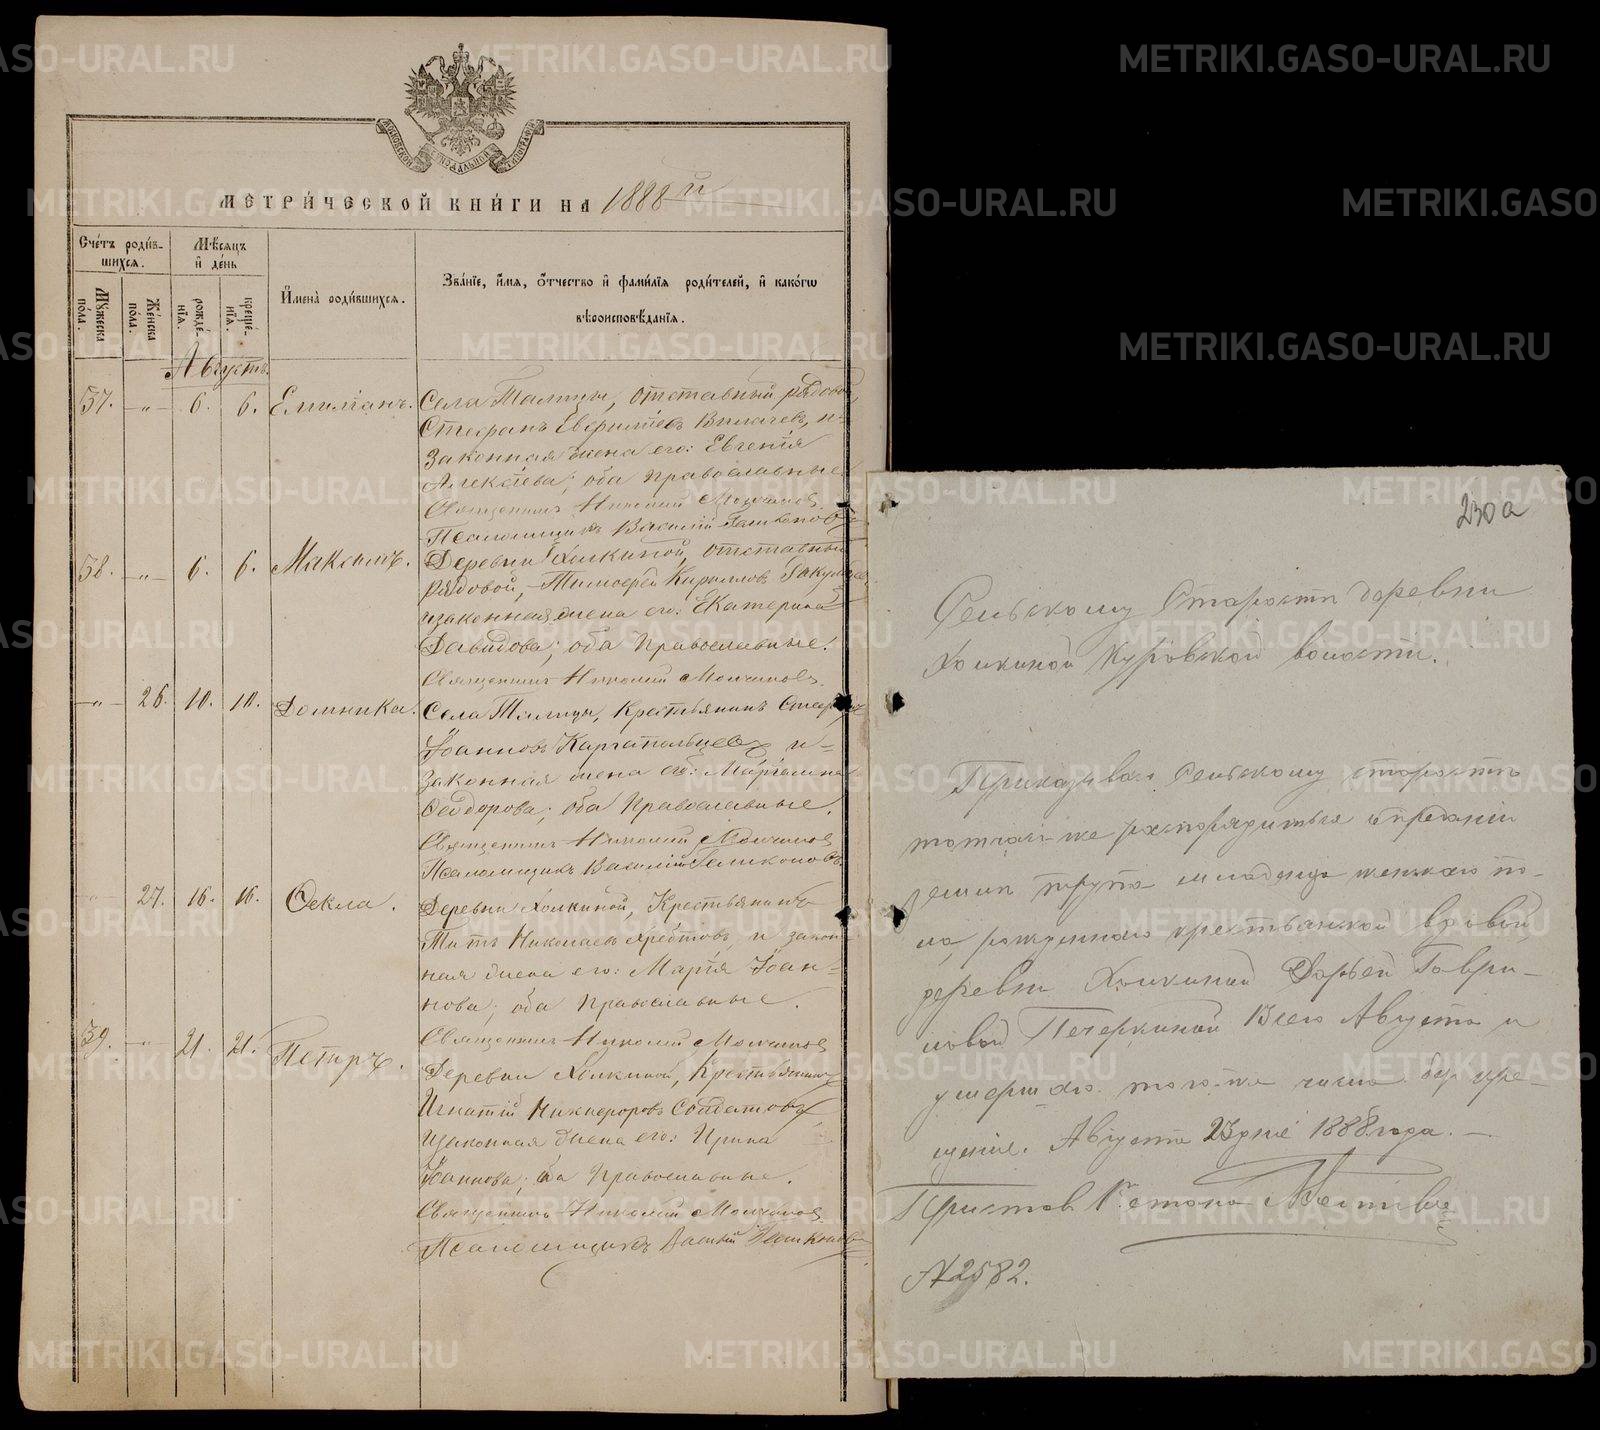 МОСКОВСКОЙ СѴНОДАЛЬНОЙ ТИПОГРАФІИ
МЕТРИ́ЧЕСКОЙ КНИ́ГИ НА 1888й
Сче́тъ роди́в-
шихся.
Мѣ́сяцъ
и҆ де́нь
Му́жеска
по́ла.
Же́нска
по́ла.
рожде́-
нїѧ.
креще́-
нїѧ.
И҆мена̀ роди́вшихся.
Зва́нїе, и҆́мѧ, ѻ҆́тчество и҆ фами́лїѧ роди́телей, и҆ како́гѡ
вѣроисповѣ́данїѧ.
Августъ.
57. -"- 6. 6. Емилианъ. Села Талицы, отставный рядовой,
Стефанъ Евфимиевъ, и
Законная жена его: Евгенія
Алексіева; оба православные.
Священникъ Николай Молчановъ
Псаломщикъ Василій
58. -"- 6. 6. Максимъ. Деревни Холкиной, отставный
рядовой, Тимофей Кирилловъ
и законная жена его: Екатерина
Давидова; оба православные.
Священникъ Николай Молчановъ
-"- 26. 10. 10. Домника. Села Талицы, Крестьянинъ Стефанъ
Іоанновъ Каргапольцевъ и
Законная жена его:
Феодорова; оба Православные.
Священникъ Николай Молчановъ
Псаломщикъ Василій
27. 16. 16. Фекла. Деревни Холкиной, Крестьянинъ
Титъ Николаевъ Хребтовъ, и закон-
ная жена его: Марія Іоан-
нова; оба православные.
Священникъ Николай Молчановъ
39. -"- 21. 21. Петръ. Деревни Холкиной, Крестьянинъ
Игнатій Никифоровъ Солдатовъ,
и законная жена его: Ирина
Іоаннова; оба православные.
Священникъ Николай Молчановъ
Псаломщикъ Василій
230а
Сельскому Старостѣ деревни
Холкиной Куровской волости.
Приказываю Сельскому старостѣ
тотчасъ же распорядиться о преданіи
землѣ трупа младенца женскаго по-
ла, рожденнаго крестьянской вдовой
деревни Холкиной Дарьей Гаври-
ловой Печеркиной 13 сего Августа и
умершаго того же числа без кре-
щенія. Августа 23 дня 1888 года. —
Пристав 1го стана
№ 2582.
METRIKI.GASO-URAL.RU